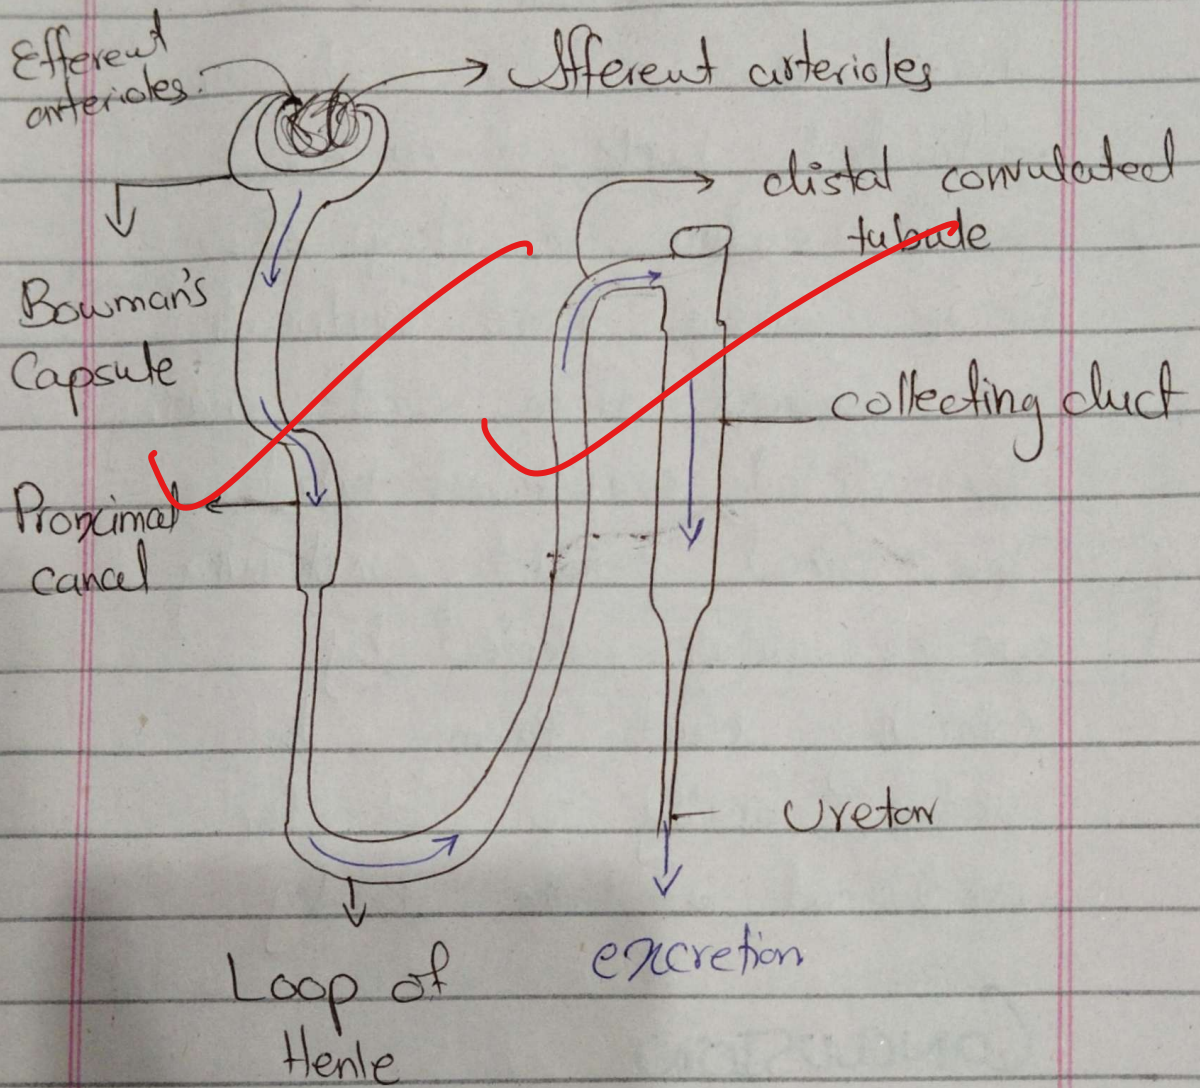 Efferent
arterioles.
Afferent arterioles
distal convulated
tubule
Bowman's
Capsule
collecting duct
Proximal
canal
Ureton
excretion
Loop of
Henle